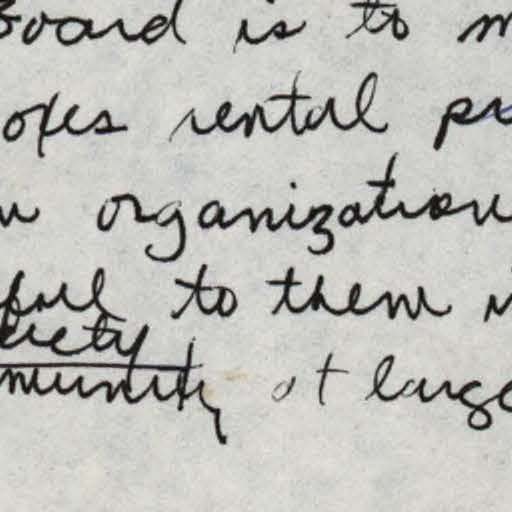 Board is to m
oxes rental pr
organization
ful to them
ciety
munity at large